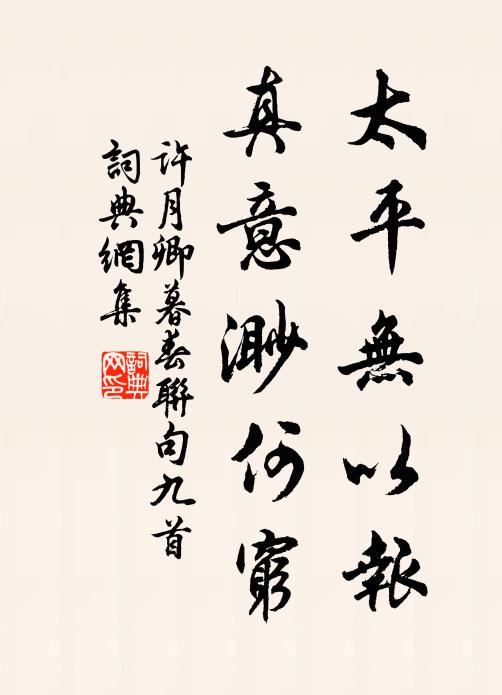 太平無以報
真意渺何窮
許月卿暮春聯句九首
詞典網集
詞典網印